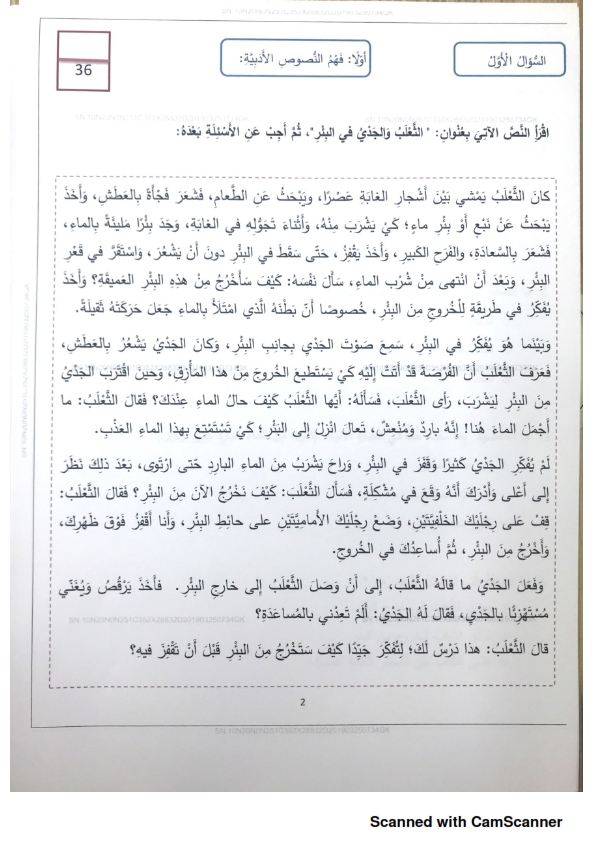 السُّؤالُ الْأَوَّلُ
أَوَّلًا: فَهْمُ النُّصوصِ الأَدَبِيَّةِ:
36
اقْرَأِ النَّصَّ الآتِيَ بِعُنْوانِ: " الثَّعْلَبُ وَالجَدْيُ في البِئْرِ"، ثُمَّ أَجِبْ عَنِ الأَسْئِلَةِ بَعْدَهُ:
كانَ الثَّعْلَبُ يَمْشي بَيْنَ أَشْجارِ الغابَةِ عَصْرًا، ويَبْحَثُ عَنِ الطَّعامِ، فَشَعَرَ فَجْأَةً بِالعَطَشِ، وَأَخَذَ
يَبْحَثُ عَنْ نَبْعٍ أَوْ بِئْرِ ماءٍ؛ كَيْ يَشْرَبَ مِنْهُ، وَأَثْناءَ تَجَوُّلِهِ في الغابَةِ، وَجَدَ بِئْرًا مَليئَةً بِالماءِ،
فَشَعَرَ بِالسَّعادَةِ، والفَرَحِ الكَبيرِ، وَأَخَذَ يَقْفِزُ، حَتّى سَقَطَ في البِئْرِ دونَ أَنْ يَشْعُرَ، وَاسْتَقَرَّ في قَعْرِ
البِئْرِ، وَبَعْدَ أَنْ انْتَهى مِنْ شُرْبِ الماءِ، سَأَلَ نَفْسَهُ: كَيْفَ سَأَخْرُجُ مِنْ هذِهِ البِئْرِ العَميقَةِ؟ وَأَخَذَ
يُفَكِّرُ في طَريقَةٍ لِلْخُروجِ مِنَ البِئْرِ، خُصوصًا أَنَّ بَطْنَهُ الَّذي امْتَلَأَ بِالماءِ جَعَلَ حَرَكَتَهُ ثَقيلَةً.
وَبَيْنَما هوَ يُفَكِّرُ في البِئْرِ، سَمِعَ صَوْتَ الجَدْيِ بِجانِبِ البِئْرِ، وَكانَ الجَدْيُ يَشْعُرُ بِالعَطَشِ،
فَعَرَفَ الثَّعْلَبُ أَنَّ الفُرْصَةَ قَدْ أَتَتْ إِلَيْهِ كَيْ يَسْتَطيعَ الخُروجَ مِنْ هذا المَأْزِقِ، وَحينَ اقْتَرَبَ الجَدْيُ
مِنَ البِئْرِ لِيَشْرَبَ، رَأى الثَّعْلَبَ، فَسَأَلَهُ: أَيُّها الثَّعْلَبُ كَيْفَ حالُ الماءِ عِنْدَكَ؟ فَقالَ الثَّعْلَبُ: ما
أَجْمَلَ الماءَ هُنا! إِنَّهُ بارِدٌ وَمُنْعِشٌ، تَعالَ انْزِلْ إِلى البَئْرِ؛ كَيْ تَسْتَمْتِعَ بِهذا الماءِ العَذْبِ.
لَمْ يُفَكِّرِ الجَدْيُ كَثيرًا وَقَفَزَ في البِئْرِ، وَراحَ يَشْرَبُ مِنَ الماءِ البارِدِ حَتّى ارْتَوى، بَعْدَ ذلِكَ نَظَرَ
إِلى أَعْلى وَأَدْرَكَ أَنَّهُ وَقَعَ في مُشْكِلَةٍ، فَسَأَلَ الثَّعْلَبَ: كَيْفَ نَخْرُجُ الآنَ مِنَ البِئْرِ؟ فَقالَ الثَّعْلَبُ:
قِفْ عَلى رِجْلَيْكَ الخَلْفِيَّتَيْنِ، وَضَعْ رِجْلَيْكَ الأَمامِيَّتَيْنِ عَلى حائِطِ البِئْرِ، وَأَنا أَقْفِزُ فَوْقَ ظَهْرِكَ،
وَأَخْرُجُ مِنَ البِئْرِ، ثُمَّ أُساعِدُكَ في الخُروجِ.
وَفَعَلَ الجَدْيُ ما قالَهُ الثَّعْلَبُ، إِلى أَنْ وَصَلَ الثَّعْلَبُ إِلى خارِجِ البِئْرِ. فَأَخَذَ يَرْقُصُ وَيُغَنّي
مُسْتَهْزِئًا بِالجَدْيِ، فَقالَ لَهُ الجَدْيُ: أَلَمْ تَعِدْني بِالمُساعَدَةِ؟
قالَ الثَّعْلَبُ: هذا دَرْسٌ لَكَ؛ لِتُفَكِّرَ جَيِّدًا كَيْفَ سَتَخْرُجُ مِنَ البِئْرِ قَبْلَ أَنْ تَقْفِزَ فيهِ؟
2
Scanned with CamScanner